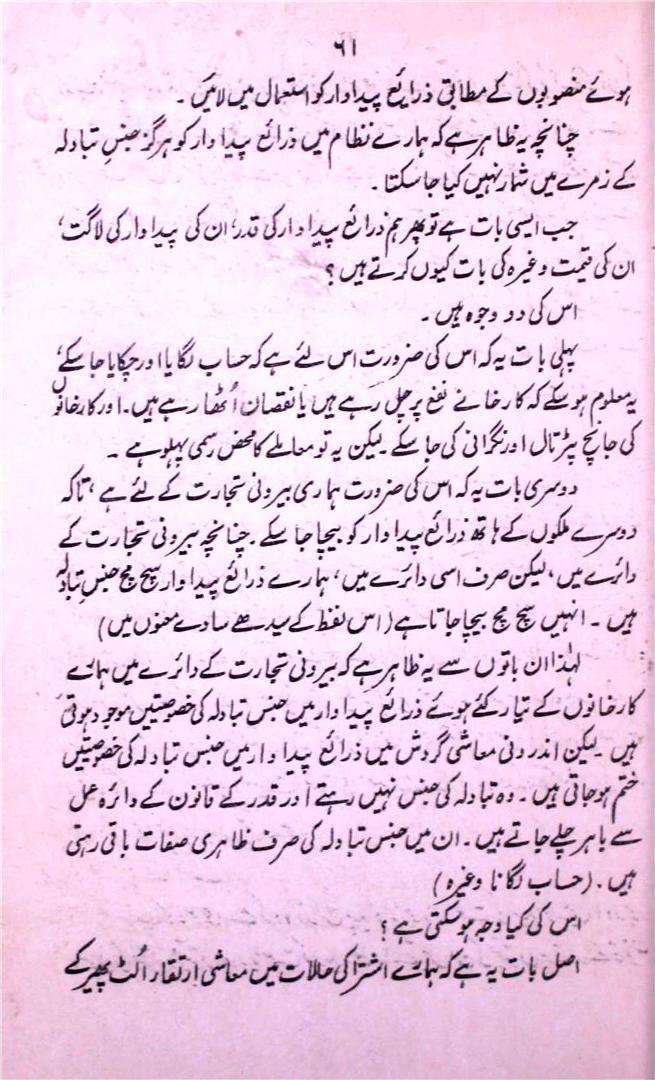 ۶۱
ہوئے منصوبوں کے مطابق ذرائع پیداوار کو استعمال میں لائیں۔
چنانچہ یہ ظاہر ہے کہ ہمارے نظام میں ذرائع پیداوار کو ہرگز جنسِ تبادلہ
کے زمرے میں شمار نہیں کیا جا سکتا۔
جب ایسی بات ہے تو پھر ہم ذرائع پیداوار کی قدر، ان کی پیداوار کی لاگت،
ان کی قیمت وغیرہ کی بات کیوں کرتے ہیں؟
اس کی دو وجوہ ہیں۔
پہلی بات یہ کہ اس کی ضرورت اس لئے ہے کہ حساب لگایا اور چکایا جا سکے،
یہ معلوم ہو سکے کہ کارخانے نفع پر چل رہے ہیں یا نقصان اُٹھا رہے ہیں۔ اور کارخانوں
کی جانچ پڑتال اور نگرانی کی جا سکے۔ لیکن یہ تو معاملے کا محض رسمی پہلو ہے۔
دوسری بات یہ کہ اس کی ضرورت ہماری بیرونی تجارت کے لئے ہے، تاکہ
دوسرے ملکوں کے ہاتھ ذرائع پیداوار کو بیچا جا سکے۔ چنانچہ بیرونی تجارت کے
دائرے میں، لیکن صرف اسی دائرے میں، ہمارے ذرائع پیداوار سچ مچ جنسِ تبادلہ
ہیں۔ انہیں سچ مچ بیچا جاتا ہے (اس لفظ کے سیدھے سادے معنوں میں)
لہٰذا ان باتوں سے یہ ظاہر ہے کہ بیرونی تجارت کے دائرے میں ہمارے
کارخانوں کے تیار کئے ہوئے ذرائع پیداوار میں جنس تبادلہ کی خصوصیتیں موجود ہوتی
ہیں۔ لیکن اندرونی معاشی گردش میں ذرائع پیداوار میں جنس تبادلہ کی خصوصیتیں
ختم ہو جاتی ہیں۔ وہ تبادلہ کی جنس نہیں رہتے اور قدر کے قانون کے دائرہ عمل
سے باہر چلے جاتے ہیں۔ ان میں جنس تبادلہ کی صرف ظاہری صفات باقی رہتی
ہیں۔ (حساب لگانا وغیرہ)
اس کی کیا وجہ ہو سکتی ہے؟
اصل بات یہ ہے کہ ہمارے اشتراکی حالات میں معاشی ارتقار اُلٹ پھیر کے